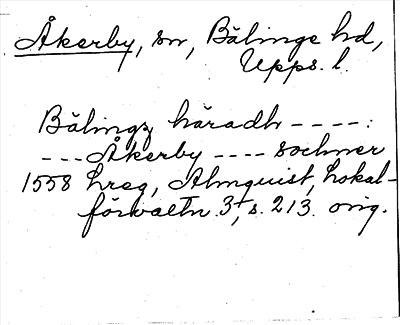 Åkerby, sn, Bälinge hd,
Upps. l.
Bälingz häradh ----:
--- Åkerby ---- sochner
1558 hreg, Almquist, Lokal-
förvaltn. 3+, s. 213. orig.